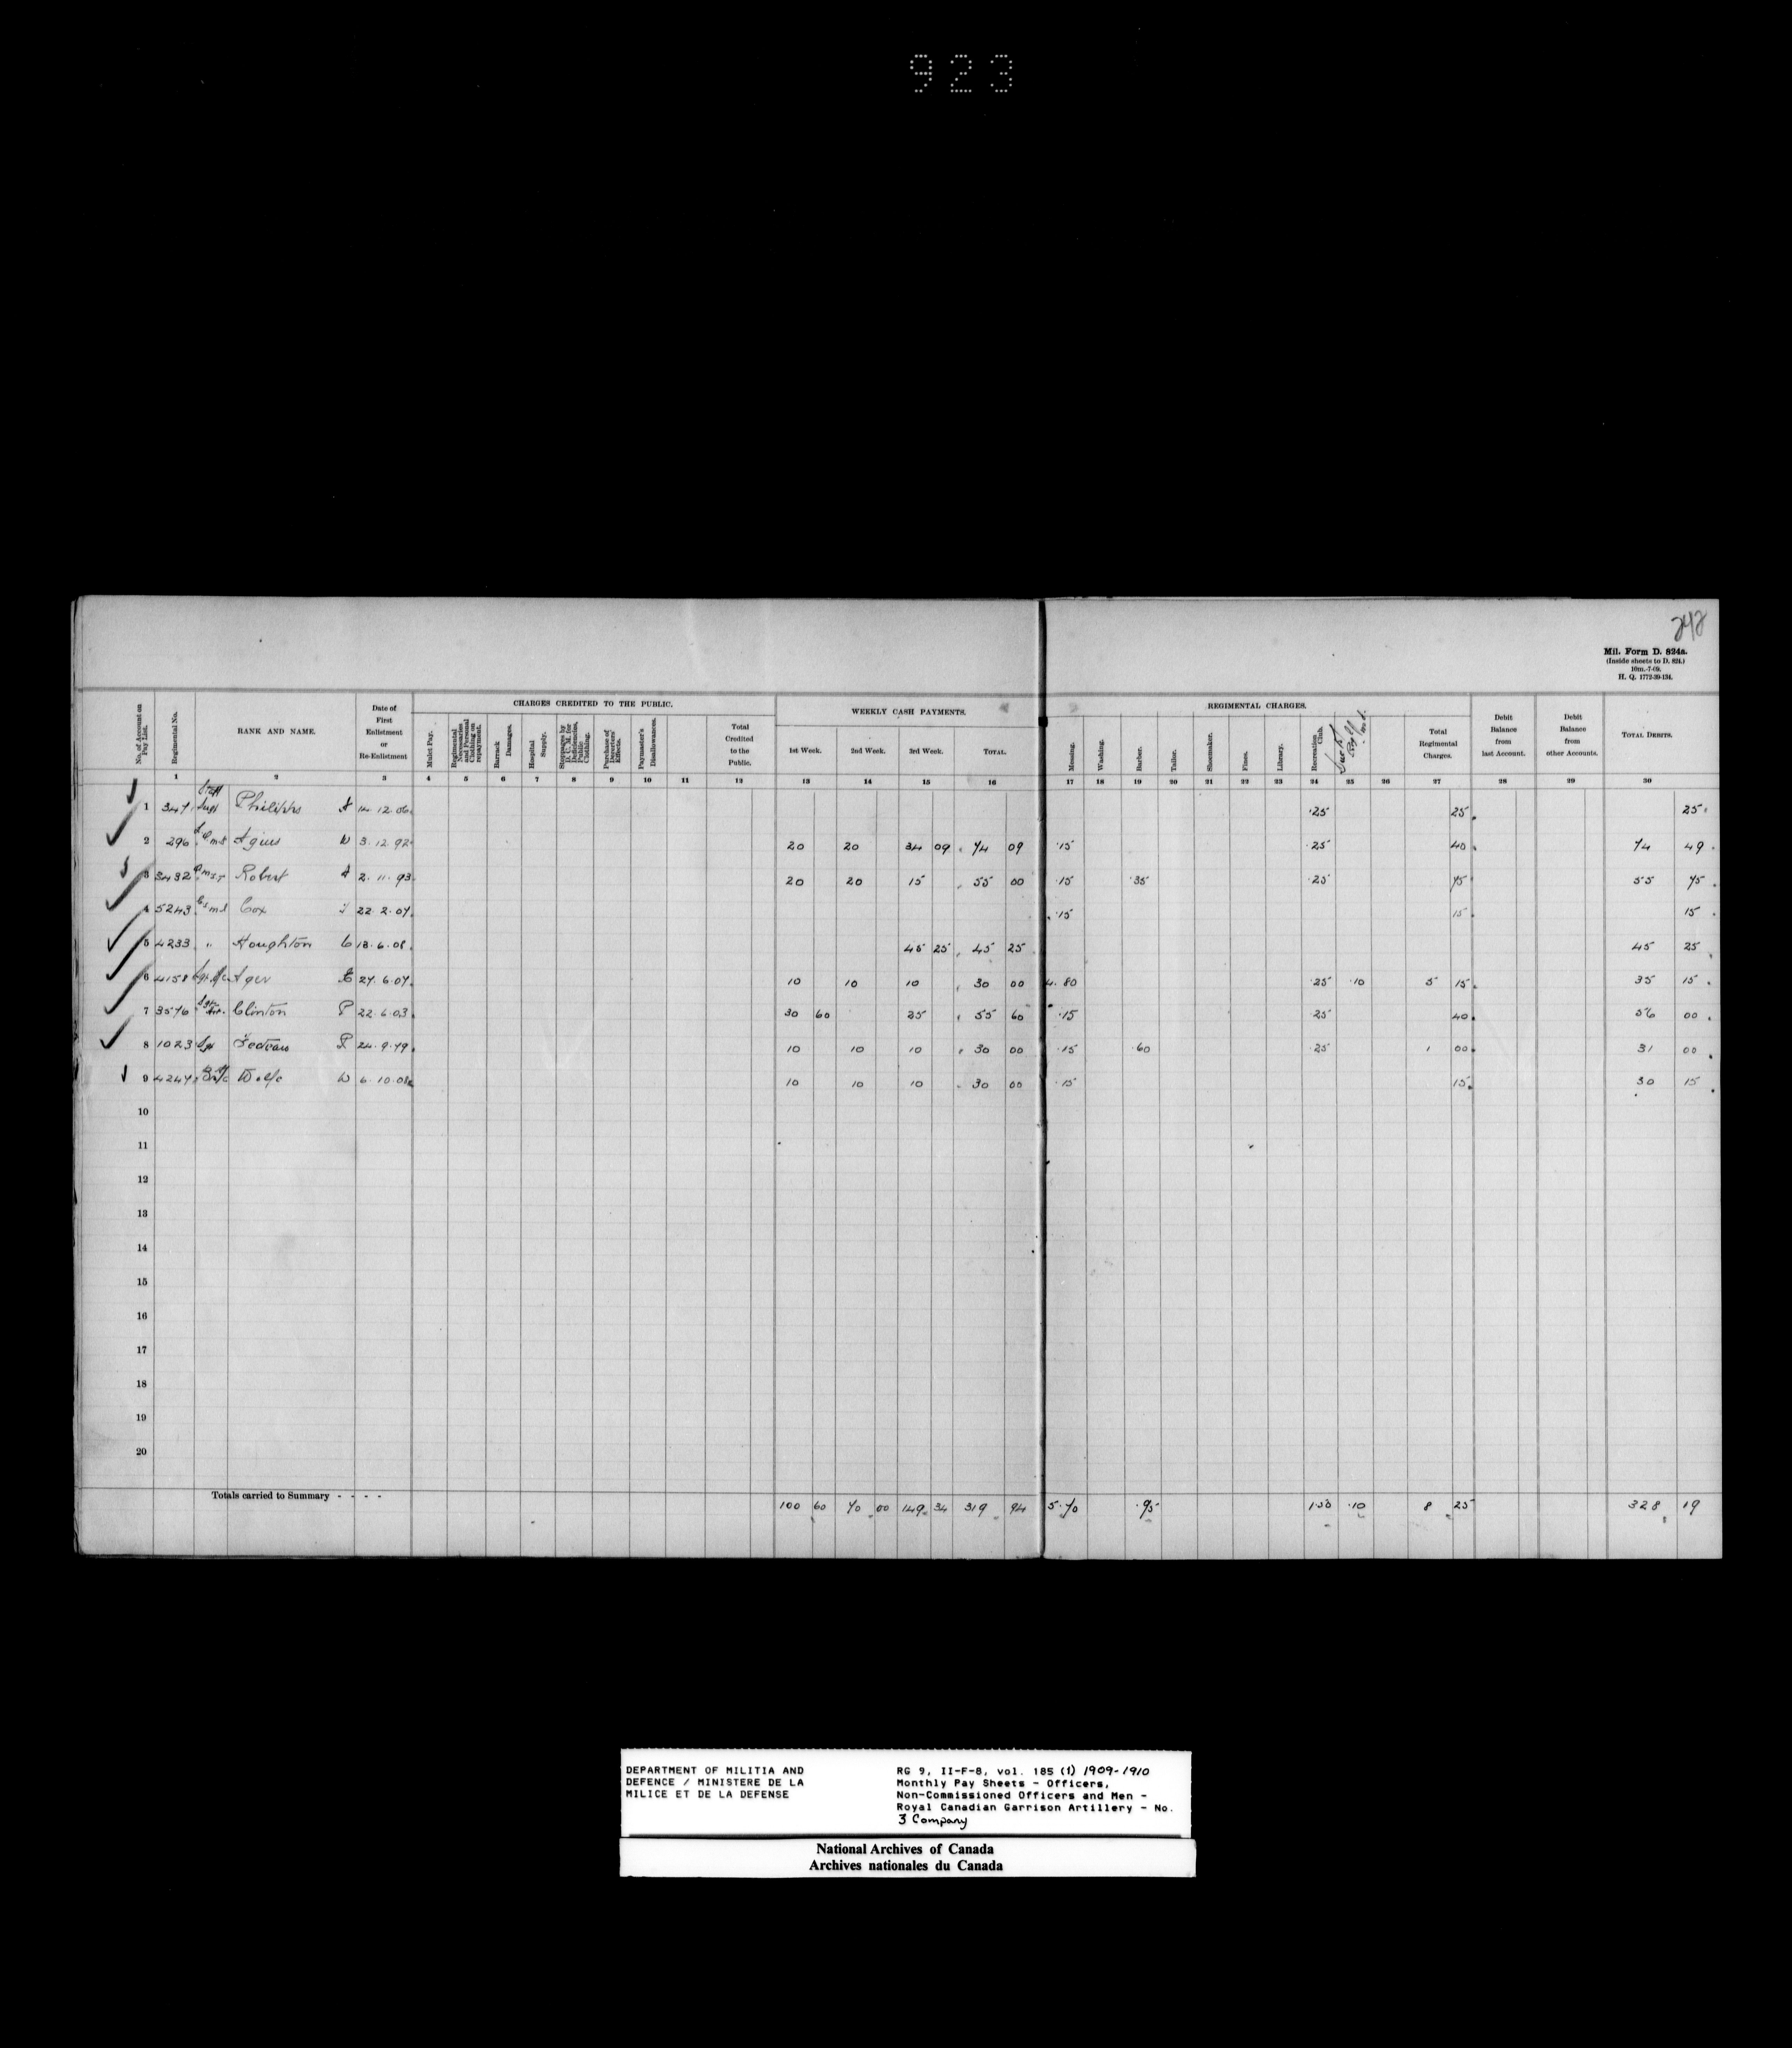 923
242
Mil. Form D. 824a.
(Inside sheets to D. 824.)
10m.-7-09.
H. Q. 1772-39-134.
CHARGES CREDITED TO THE PUBLIC. WEEKLY CASH PAYMENTS. REGIMENTAL CHARGES.
No. of Account on Pay List. Regimental No. RANK AND NAME. Date of First Enlistment or Re-Enlistment Mulct Pay. Regimental Necessaries and Personal Clothing on repayment. Barrack Damages. Hospital Supply. Stoppages by D. C. M. for Deficiencies, Public Clothing. Purchase of Deserters' Effects. Paymaster's Disallowances. Total Credited to the Public. 1st Week. 2nd Week. 3rd Week. TOTAL. Messing. Washing. Barber. Tailor. Shoemaker. Fines. Library. Recreation Club. Total Regimental Charges. Debit Balance from last Account. Debit Balance from other Accounts. TOTAL DEBITS.
1 2 3 4 5 6 7 8 9 10 11 12 13 14 15 16 17 18 19 20 21 22 23 24 25 26 27 28 29 30
1 347 Staff Sergt Philipps A 14.12.06. .25 25 25
2 296 Agius W 3.12.92 20 20 34 09 74 09 .15 .25 40 74 49
3 3432 Robert A 2.11.93 20 20 15 55 00 .15 .35 .25 75 55 75
4 5243 Cox 22.2.07. .15 15 15
5 4233 " Houghton C 18.6.08. 45 25 45 25 45 25
6 4158 Ager E 27.6.07. 10 10 10 30 00 4.80 .25 .10 5 15 35 15
7 3576 Clinton P 22.6.03. 30 60 25 55 60 .15 .25 40 56 00
8 1023 Sgt R 24.9.79. 10 10 10 30 00 .15 .60 .25 1 00 31 00
9 4247 Wolfe W 6.10.08 10 10 10 30 00 .15 15 30 15
10
11
12
13
14
15
16
17
18
19
20
Totals carried to Summary - - - - 100 60 70 00 149 34 319 94 5.70 .95 1.50 .10 8 25 328 19
DEPARTMENT OF MILITIA AND
DEFENCE / MINISTERE DE LA
MILICE ET DE LA DEFENSE
RG 9, II-F-8, vol. 185 (1) 1909-1910
Monthly Pay Sheets - Officers,
Non-Commissioned Officers and Men -
Royal Canadian Garrison Artillery - No.
3 Company
National Archives of Canada
Archives nationales du Canada